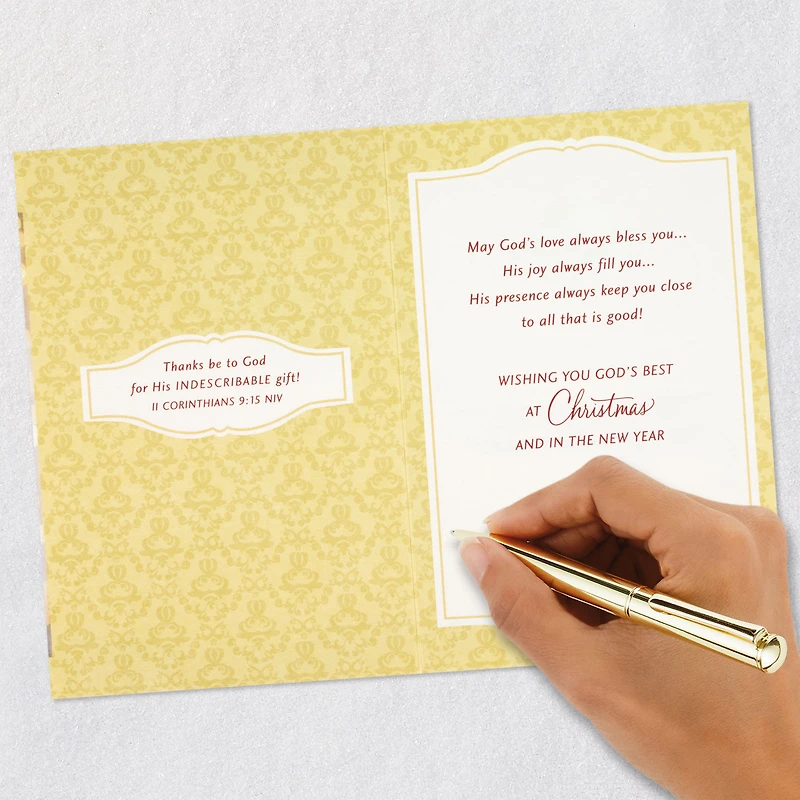 Thanks be to God
for His INDESCRIBABLE gift!
II CORINTHIANS 9:15 NIV
May God's love always bless you...
His joy always fill you...
His presence always keep you close
to all that is good!
WISHING YOU GOD'S BEST
AT Christmas
AND IN THE NEW YEAR